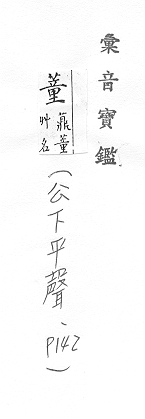 彙音寶鑑
董 薡董
艸名
(公下平聲、P142)